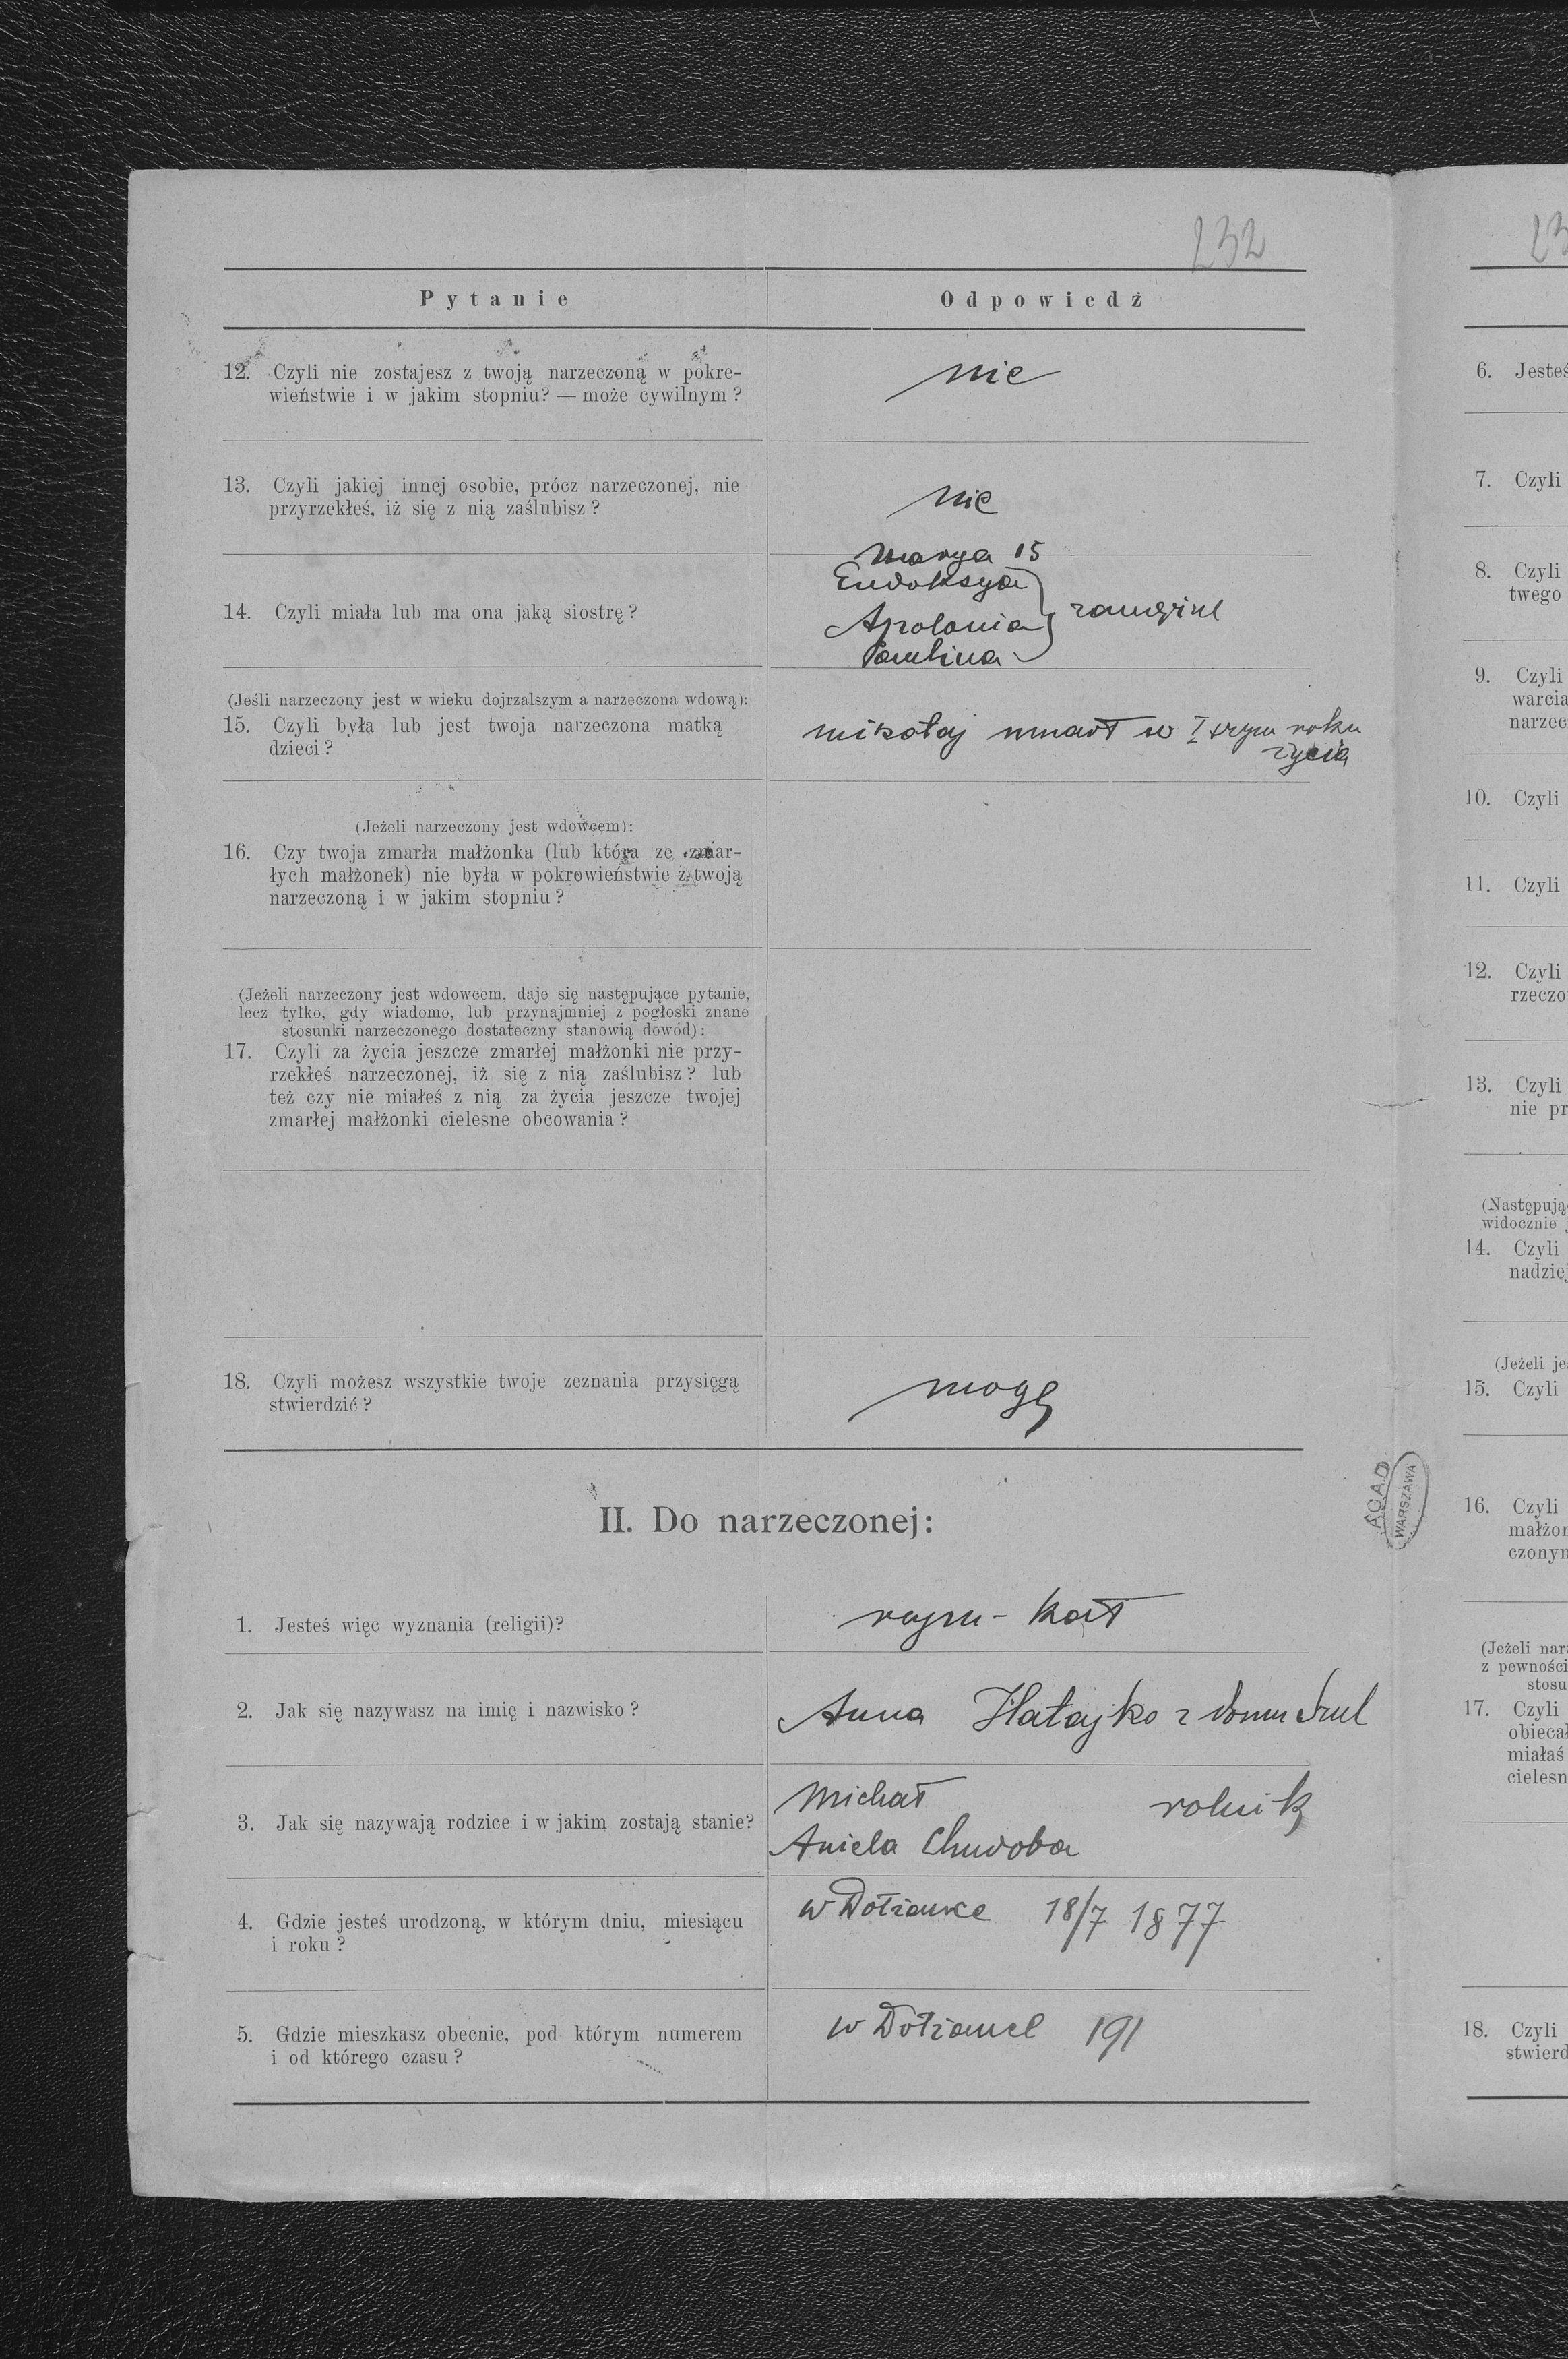 232
Pytanie
Odpowiedź
12. Czyli nie zostajesz z twoją narzeczoną w pokre-
wieństwie i w jakim stopniu? — może cywilnym?
nie
13. Czyli jakiej innej osobie, prócz narzeczonej, nie
przyrzekłeś, iż się z nią zaślubisz?
nie
14. Czyli miała lub ma ona jaką siostrę?
Marya 15
Eudoksya
Apolonia
Paulina
(Jeśli narzeczony jest w wieku dojrzalszym a narzeczona wdową):
15. Czyli była lub jest twoja narzeczona matką
dzieci?
mikołaj umarł w I szym roku
życia
(Jeżeli narzeczony jest wdowcem):
16. Czy twoja zmarła małżonka (lub która ze zmar-
łych małżonek) nie była w pokrewieństwie z twoją
narzeczoną i w jakim stopniu?
(Jeżeli narzeczony jest wdowcem, daje się następujące pytanie,
lecz tylko, gdy wiadomo, lub przynajmniej z pogłoski znane
stosunki narzeczonego dostateczny stanowią dowód):
17. Czyli za życia jeszcze zmarłej małżonki nie przy-
rzekłeś narzeczonej, iż się z nią zaślubisz? lub
też czy nie miałeś z nią za życia jeszcze twojej
zmarłej małżonki cielesne obcowania?
18. Czyli możesz wszystkie twoje zeznania przysięgą
stwierdzić?
mogę
II. Do narzeczonej:
1. Jesteś więc wyznania (religii)?
rzym-kat
2. Jak się nazywasz na imię i nazwisko?
Anna Hałajko z domu
3. Jak się nazywają rodzice i w jakim zostają stanie?
Michał rolnik
Aniela Chudoba
4. Gdzie jesteś urodzoną, w którym dniu, miesiącu
i roku?
w Dołżance 18/7 1877
5. Gdzie mieszkasz obecnie, pod którym numerem
i od którego czasu?
w Dołżance 191
AGAD
WARSZAWA
23
6. Jesteś
7. Czyli
8. Czyli
twego
9. Czyli
warcia
narzec
10. Czyli
11. Czyli
12. Czyli
rzeczo
13. Czyli
nie pr
(Następują
widocznie
14. Czyli
nadziej
(Jeżeli je
15. Czyli
16. Czyli
małżon
czonym
(Jeżeli nar
z pewności
stosu
17. Czyli
obiecał
miałaś
cielesn
18. Czyli
stwierd